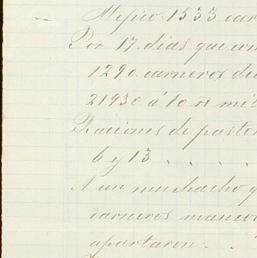 Mejico 1533 car
Por 17 dias que com
1290 carneros de
21930 á 10 rs mil
Raciones de pasto
6 y 13 . . . .
A un muchacho q
carneros mancor
apartaron . .